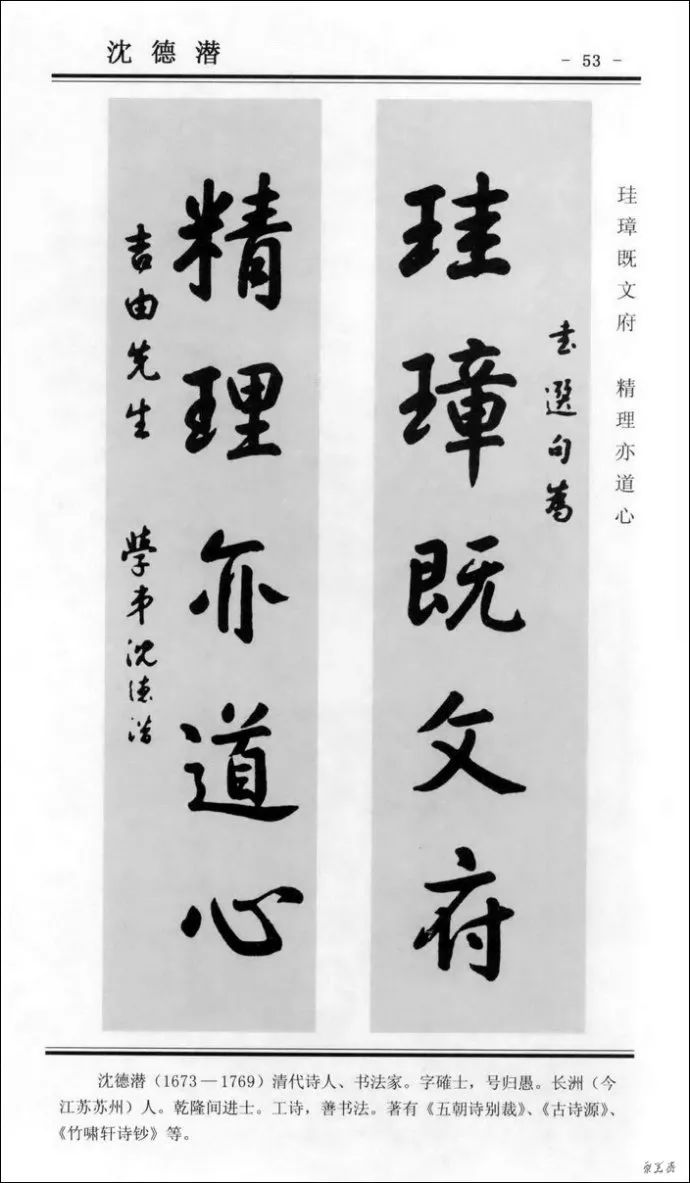 沈德潜
- 53 -
珪璋既文府 精理亦道心
书選句為
珪璋既文府
精理亦道心
吉由先生 學弟沈德潜
沈德潜（1673—1769）清代诗人、书法家。字確士，号归愚。长洲（今
江苏苏州）人。乾隆间进士。工诗，善书法。著有《五朝诗别裁》、《古诗源》、
《竹啸轩诗钞》等。